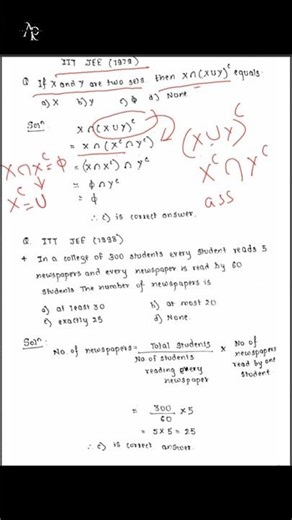 AR
IIT JEE (1979)
Q If X and Y are two sets then X∩(X∪Y)ᶜ equals
a) X b) Y c) ϕ d) None
Solⁿ X∩(X∪Y)ᶜ
= X∩(Xᶜ∩Yᶜ)
= (X∩Xᶜ)∩Yᶜ
= ϕ∩Yᶜ
= ϕ
∴ c) is correct answer.
X∩Xᶜ=ϕ
Xᶜ=U
(X∪Y)ᶜ
Xᶜ∩Yᶜ
ass
Q. IIT JEE (1998)
+ In a college of 300 students every student reads 5
newspapers and every newspaper is read by 60
students The number of newspapers is
a) at least 30 b) at most 20
c) exactly 25 d) None
Solⁿ:
No. of newspapers = Total students / No of students reading every newspaper × No of newspapers read by one student
= 300/60 ×5
= 5×5 = 25
∴ c) is correct answer.